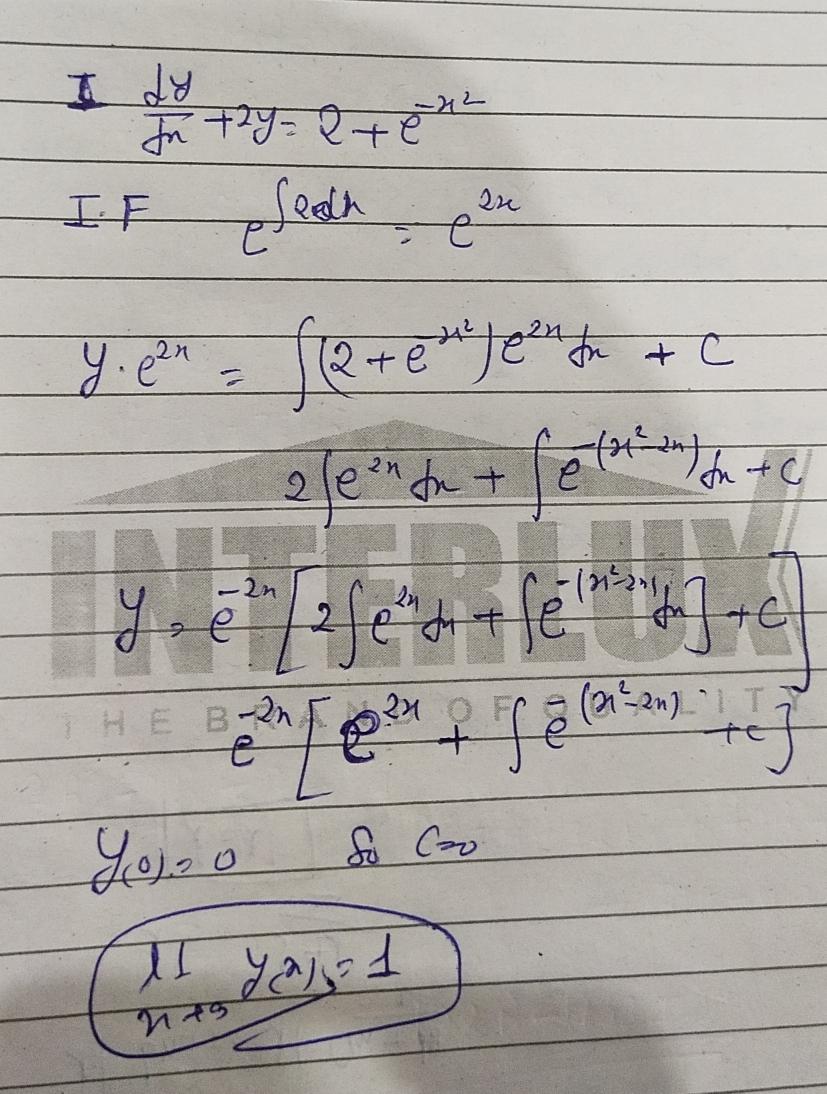 I dy/dx + 2y = 2 + e^{-x^2}
I.F e^{∫2dx} = e^{2x}
y·e^{2x} = ∫(2 + e^{-x^2}) e^{2x} dx + C
2∫e^{2x} dx + ∫e^{-(x^2-2x)} dx + C
INTERLUX
y = e^{-2x} [2∫e^{2x} dx + ∫e^{-(x^2-2x)} dx] + C]
THE BRAND OF QUALITY
e^{-2x} [e^{2x} + ∫e^{-(x^2-2x)} + c]
y(0) = 0 So C=0
lt y(x) = 1
x→∞